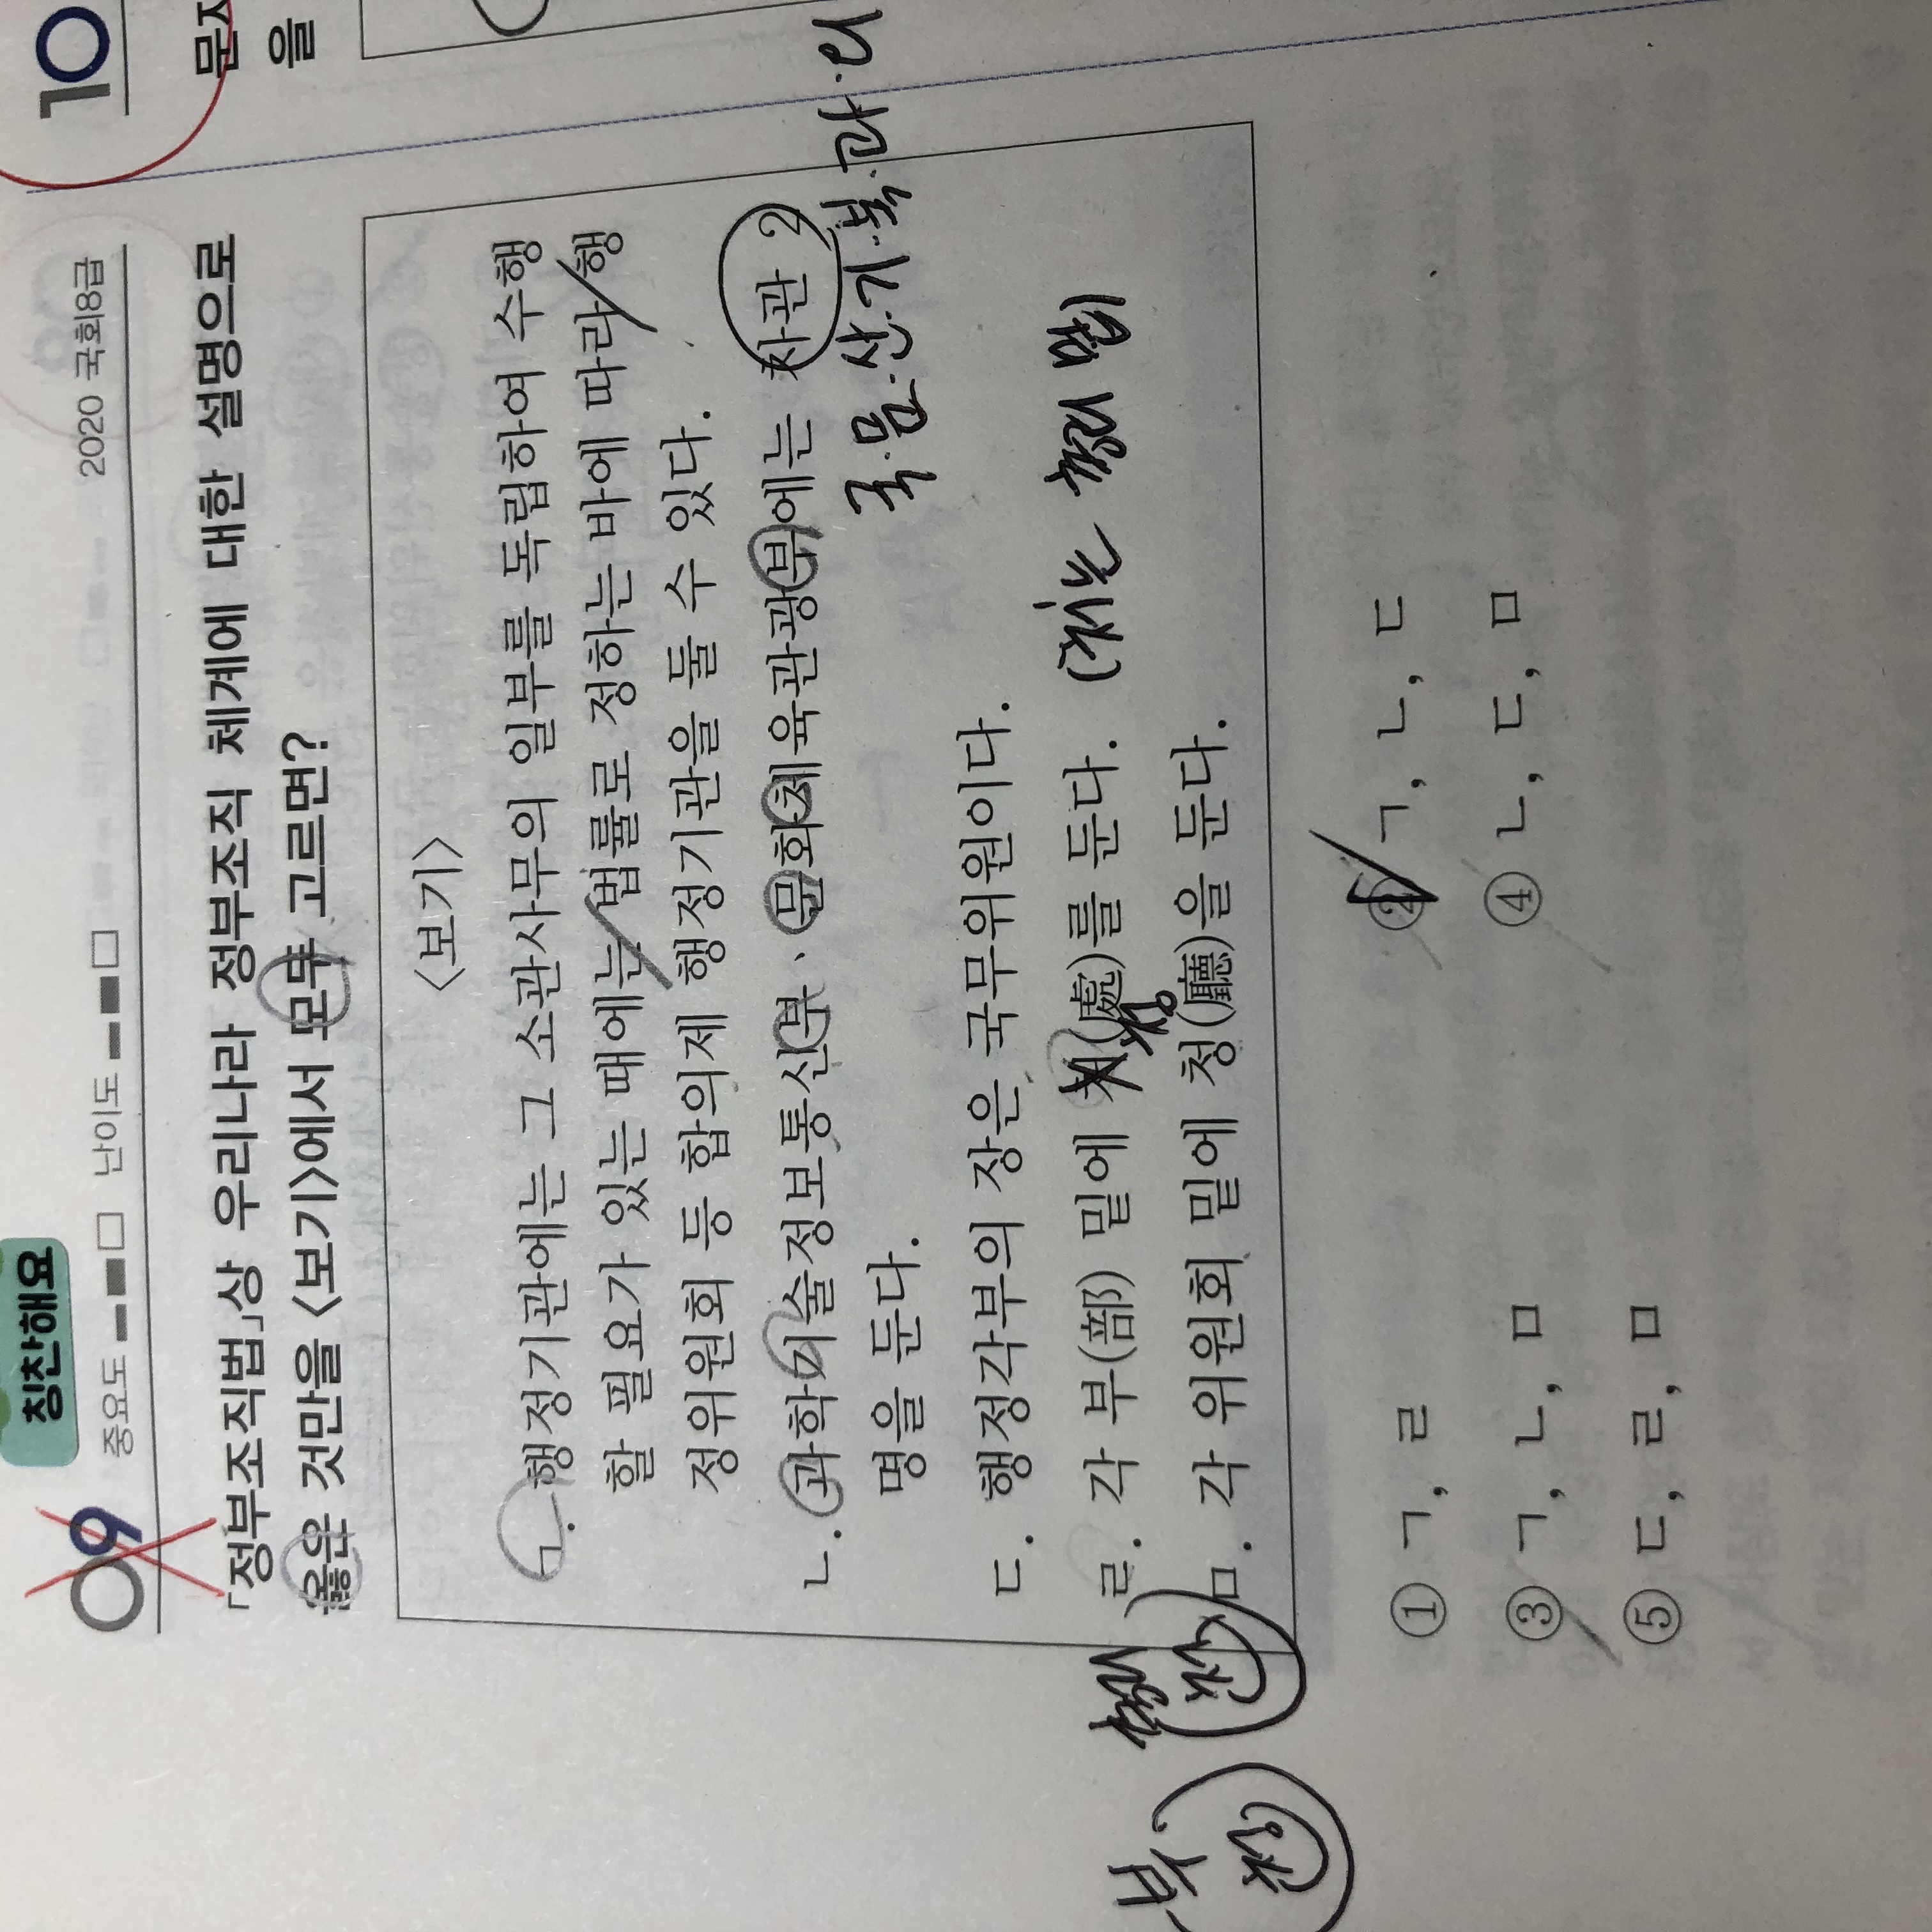 칭찬해요
09
중요도 난이도
2020 국회8급
「정부조직법」상 우리나라 정부조직 체계에 대한 설명으로
옳은 것만을 <보기>에서 모두 고르면?
<보기>
ㄱ. 행정기관에는 그 소관사무의 일부를 독립하여 수행
할 필요가 있는 때에는 법률로 정하는 바에 따라 행
정위원회 등 합의제 행정기관을 둘 수 있다.
ㄴ. 과학기술정보통신부、문화체육관광부에는 차관 2
명을 둔다.
국·문·산·기·복·과·외
ㄷ. 행정각부의 장은 국무위원이다.
ㄹ. 각 부(部) 밑에 처(處)를 둔다.
청
ㅁ. 각 위원회 밑에 청(廳)을 둔다.
부
청
① ㄱ, ㄹ
② ㄱ, ㄴ, ㄷ
③ ㄱ, ㄴ, ㅁ
④ ㄴ, ㄷ, ㅁ
⑤ ㄷ, ㄹ, ㅁ
10
을